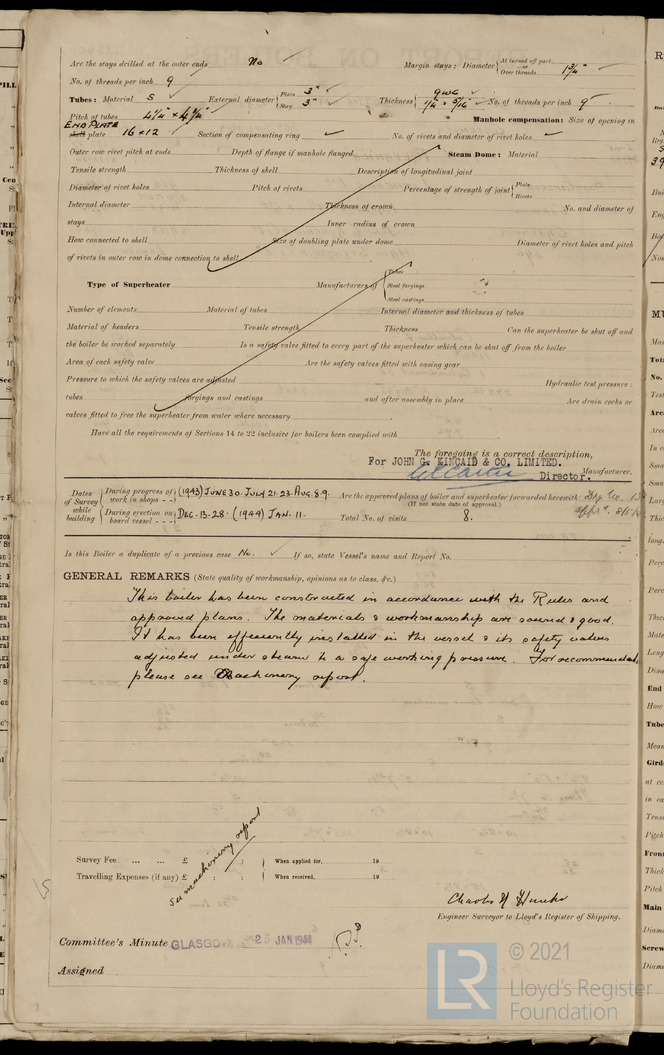 Are the stays drilled at the outer ends No Margin stays: Diameter { At turned off part, Over threads 1 3/4"
No. of threads per inch 9
Tubes: Material S External diameter { Plain 3" Stay 3" Thickness { 9 WG 1/4" & 5/16" No. of threads per inch 9
Pitch of tubes 4 1/4" x 4 1/4" Manhole compensation: Size of opening in
END PLATE shell plate 16 x 12 Section of compensating ring No. of rivets and diameter of rivet holes
Outer row rivet pitch at ends Depth of flange if manhole flanged Steam Dome: Material
Tensile strength Thickness of shell Description of longitudinal joint
Diameter of rivet holes Pitch of rivets Percentage of strength of joint { Plate Rivets
Internal diameter Thickness of crown No. and diameter of
stays Inner radius of crown
How connected to shell Size of doubling plate under dome Diameter of rivet holes and pitch
of rivets in outer row in dome connection to shell
Type of Superheater Manufacturers of { Tubes Steel forgings Steel castings
Number of elements Material of tubes Internal diameter and thickness of tubes
Material of headers Tensile strength Thickness Can the superheater be shut off and
the boiler be worked separately Is a safety valve fitted to every part of the superheater which can be shut off from the boiler
Area of each safety valve Are the safety valves fitted with easing gear
Pressure to which the safety valves are adjusted Hydraulic test pressure:
tubes forgings and castings and after assembly in place Are drain cocks or
valves fitted to free the superheater from water where necessary
Have all the requirements of Sections 14 to 22 inclusive for boilers been complied with
The foregoing is a correct description,
For JOHN G. KINCAID & CO. LIMITED.
Director. Manufacturer.
Dates of Survey while building { During progress of work in shops - - } (1943) JUNE 30. JULY 21. 23. AUG. 8. 9. Are the approved plans of boiler and superheater forwarded herewith
(If not state date of approval.)
{ During erection on board vessel - - - } DEC. 13. 28. (1944) JAN. 11. Total No. of visits 8.
Is this Boiler a duplicate of a previous case No. If so, state Vessel's name and Report No.
GENERAL REMARKS (State quality of workmanship, opinions as to class, &c.)
This boiler has been constructed in accordance with the Rules and
approved plans. The materials & workmanship are sound & good.
It has been efficiently installed in the vessel & its safety valves
adjusted under steam to a safe working pressure. For recommendat
please see Machinery report.
see machinery report
Survey Fee ... ... £ : : When applied for, 19
Travelling Expenses (if any) £ : : When received, 19
Charles Hunter
Engineer Surveyor to Lloyd's Register of Shipping.
Committee's Minute GLASGOW 25 JAN 1944
Assigned
LR © 2021
Lloyd's Register
Foundation